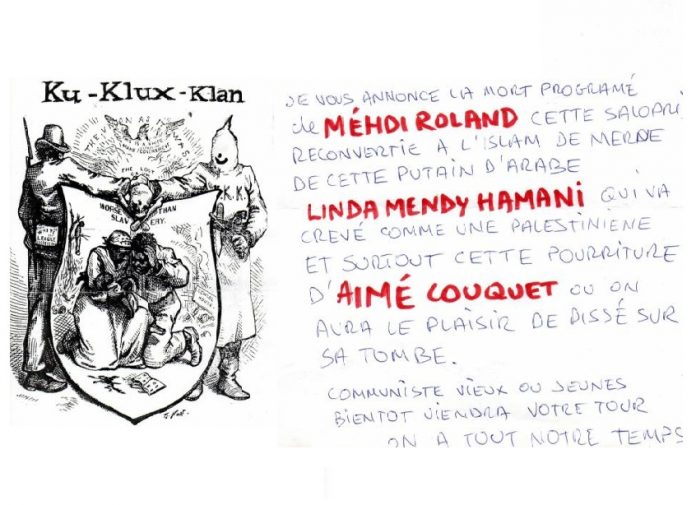 Ku-Klux-Klan
WORSE THAN
SLAVERY.
JE VOUS ANNONCE LA MORT PROGRAMÉ
de MÉHDI ROLAND CETTE SALOPARI
RECONVERTIE A L'ISLAM DE MERDE
DE CETTE PUTAIN D'ARABE
LINDA MENDY HAMANI QUI VA
CREVÉ COMME UNE PALESTINIENE
ET SURTOUT CETTE POURRITURE
D'AIMÉ COUQUET OU ON
AURA LE PLAISIR DE PISSÉ SUR
SA TOMBE.
COMMUNISTE VIEUX OU JEUNES
BIENTOT VIENDRA VOTRE TOUR
ON A TOUT NOTRE TEMPS